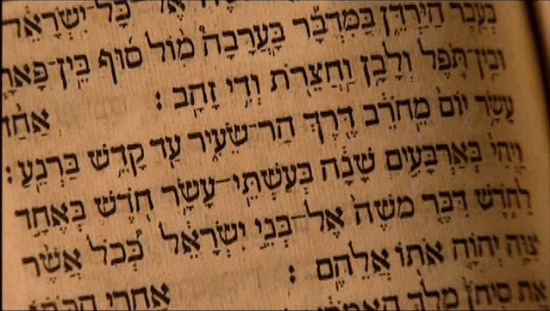 אֶל־כָּל־יִשְׂרָאֵל
בְּעֵ֖בֶר הַיַּרְדֵּ֑ן בַּמִּדְבָּ֡ר בָּֽעֲרָבָה֩ מ֨וֹל ס֜וּף בֵּֽין־פָּארָ
וּבֵֽין־תֹּ֥פֶל וְלָבָ֛ן וַחֲצֵרֹ֖ת וְדִ֥י זָהָֽב : אַחַד
עָשָׂ֥ר יוֹם֙ מֵֽחֹרֵ֔ב דֶּ֖רֶךְ הַר־שֵׂעִ֑יר עַ֖ד קָדֵ֥שׁ בַּרְנֵֽעַ :
וַיְהִי֙ בְּאַרְבָּעִ֣ים שָׁנָ֔ה בְּעַשְׁתֵּֽי־עָשָׂ֥ר חֹ֖דֶשׁ בְּאֶחָ֣ד
לַחֹ֑דֶשׁ דִּבֶּ֤ר מֹשֶׁה֙ אֶל־בְּנֵ֣י יִשְׂרָאֵ֔ל כְּ֠כֹל אֲשֶׁ֨ר
צִוָּ֧ה יְהוָ֛ה אֹת֖וֹ אֲלֵהֶֽם : אַחֲרֵ֣י
אֵ֚ת סִיחֹן֙ מֶ֣לֶךְ